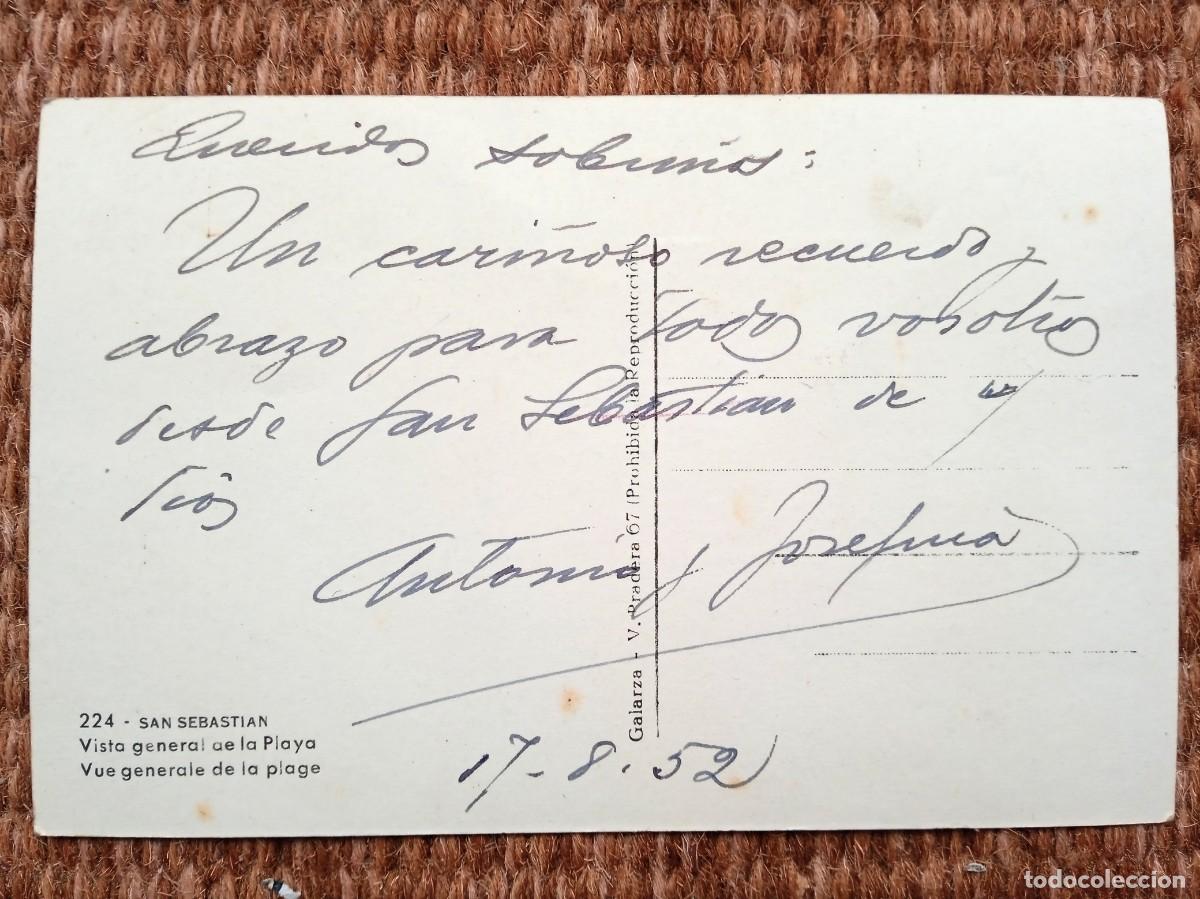 Queridos sobrinos:
Un cariñoso recuerdo,
abrazo para todos vosotros
desde San Sebastian de
tios
Antonio y Josefina
17-8-52
224 - SAN SEBASTIAN
Vista general de la Playa
Vue generale de la plage
Galarza - V. Pradera 67 (Prohibida la Reproducción)
todocoleccion